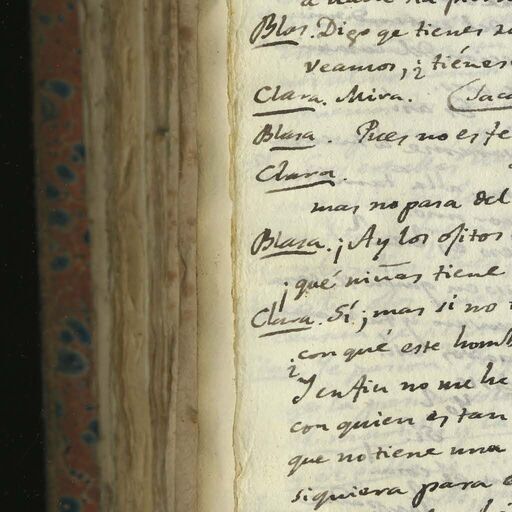 Blas. Digo qe tienes
veamos, ¿tienes
Clara. Mira. (Saca
Blasa. Pues no es fe
Clara.
mas no pasa del
Blasa. ¡Ay los ojitos
¡qué niñas tiene
Clara. Sí; mas si no
¿con qué este homb
Y en fin no me he
con quien es tan
que no tiene una
siquiera para